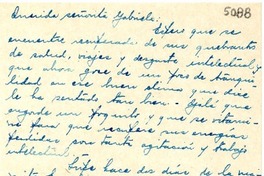 5088
Querida señorita Gabriela:
Espero que se
encuentre recuperada de sus quebrantos
de salud, viajes y desgaste intelectual y
que ahora goce de un poco de tranqui-
lidad en ese buen clima que dice
le ha sentado tan bien. Ojalá que
engorde un poquito y que se vitami-
ne para que recupere sus energías
perdidas con tanta agitación y trabajo
intelectual.
hace dos días de la